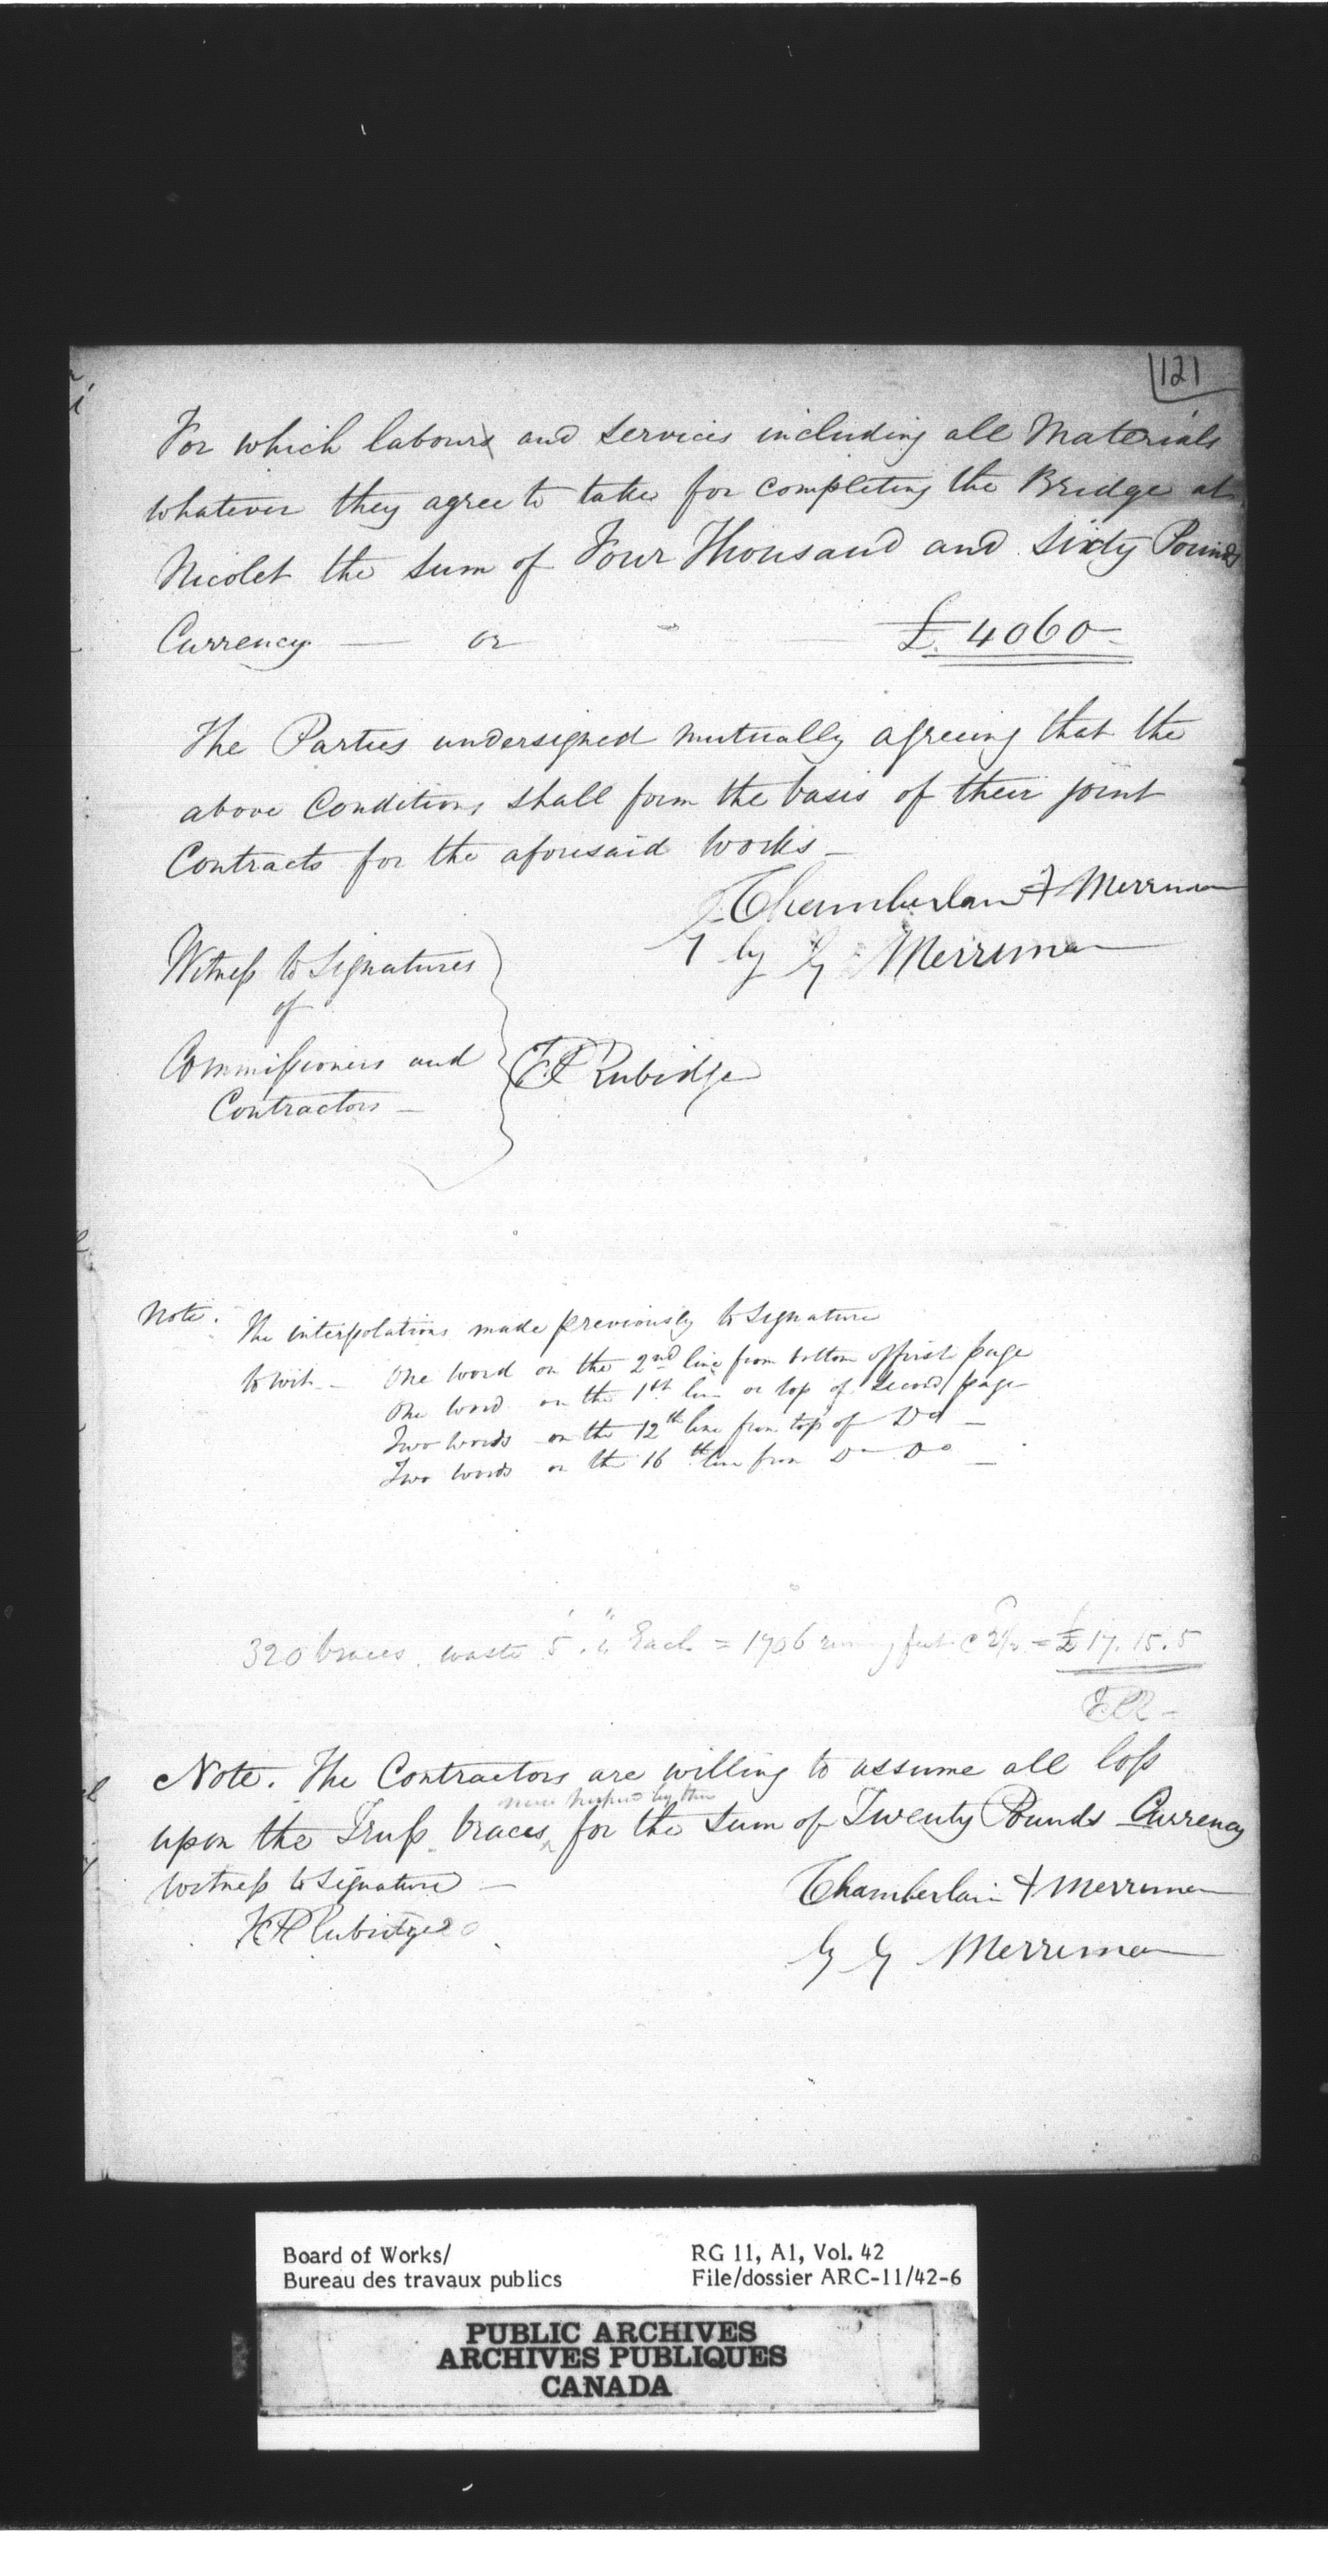 121
For which labours and services including all Materials
whatever they agree to take for completing the Bridge at
Nicolet the sum of Four Thousand and Sixty Pounds
Currency — or — £ 4060-
The Parties undersigned mutually agreeing that the
above Conditions shall form the basis of their joint
Contracts for the aforesaid Works —
Chamberlain & Merriman
by G Merriman
Witness to Signatures
of
Commissioners and
Contractors —
F P Rubidge
Note. The interpolations made previously to Signature
to wit — One word on the 2nd line from bottom of first page
One word on the 1st line or top of Second page
Two words on the 12th line from top of Do —
Two words on the 16th line from Do Do —
320 braces waste Each = 1706 running feet = £ 17. 15. 5
FPR —
Note. The Contractors are willing to assume all loss
upon the Truss braces for the Sum of Twenty Pounds Currency
Witness to Signature —
F P Rubidge
Chamberlain & Merriman
by G Merriman
Board of Works/
Bureau des travaux publics
RG 11, A1, Vol. 42
File/dossier ARC-11/42-6
PUBLIC ARCHIVES
ARCHIVES PUBLIQUES
CANADA